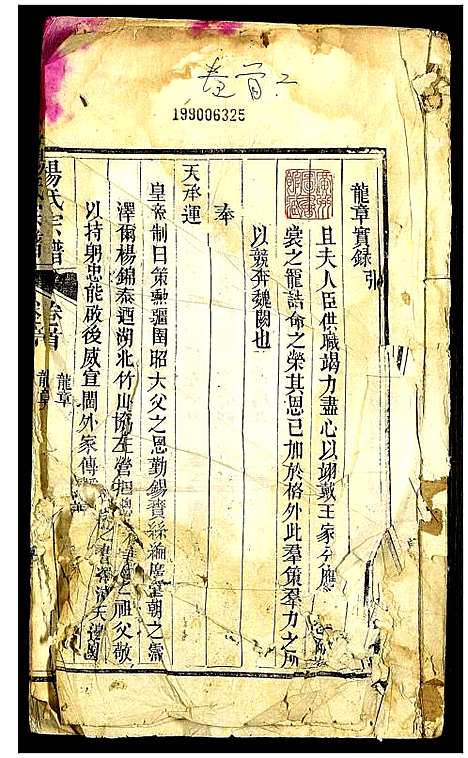 卷首二
199006325
龍章實錄 引
且夫人臣供職竭力盡心以翊戴王家分應
裳之寵誥命之榮其恩已加於格外此羣策羣力之所
以競奔魏闕也
奉
天承運
皇帝制曰策勳疆圉昭大父之恩勤錫賚絲綸廣皇朝之壽
澤爾楊錦泰迺湖北竹山協左營把總之祖父敬
以持躬忠能啟後威宣閫外家傳之書澤天邊國
楊氏宗譜 卷首 龍章